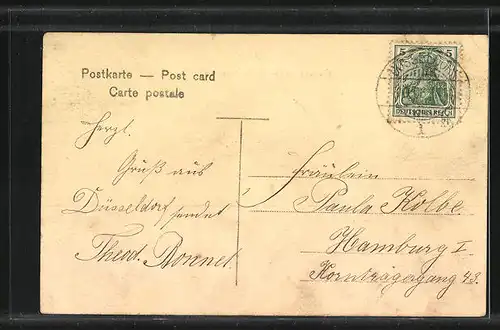 Postkarte — Post card
Carte postale
5 5
DEUTSCHES REICH
1
Herzl.
Gruß aus
Düsseldorf sendet
Theod. Bonnet.
Fräulein
Paula Kolbe.
Hamburg I
Kornträgergang 43.